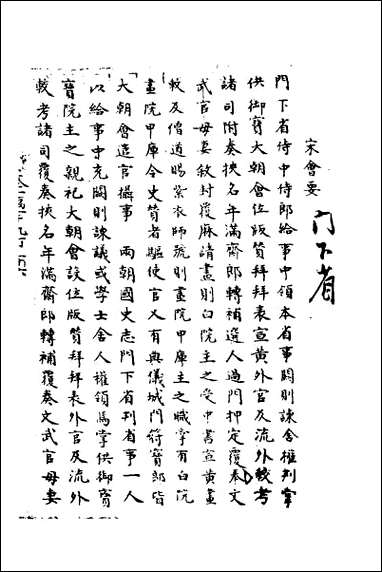 宋會要
門下省
門下省侍中侍郎給事中領本省事闕則諫舍權判掌
供御寶大朝會位版贊拜拜表宣黃外官及流外較考
諸司附奏挾名年滿齋郎轉補選人過門押定覆奏文
武官母妻敘封覆麻請畫則白院主之受中書宣黃畫
敕及僧道賜紫衣師號則畫院甲庫主之職掌有白院
畫院甲庫令史贊者驅使官又有典儀城門符寶郎皆
大朝會遣官攝事　兩朝國史志門下省判省事一人
以給事中充闕則諫議或學士舍人權領焉掌供御寶
寶院主之親祀大朝會設位版贊拜拜表外官及流外
較考諸司覆奏挾名年滿齋郎轉補覆奏文武官母妻